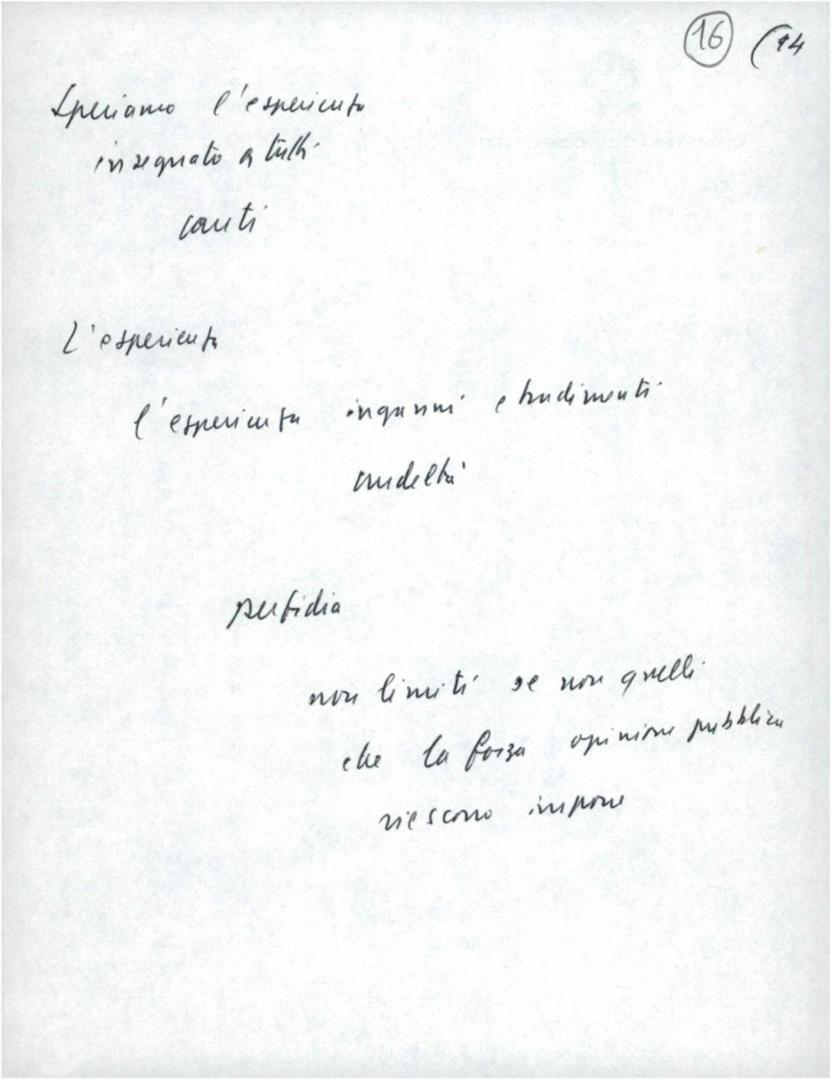 16 (14
Speriamo l'esperienza
insegnato a tutti
cauti
L'esperienza
l'esperienza inganni e tradimenti
crudeltà
perfidia
non limiti se non quelli
che la forza opinione pubblica
riescono imporre